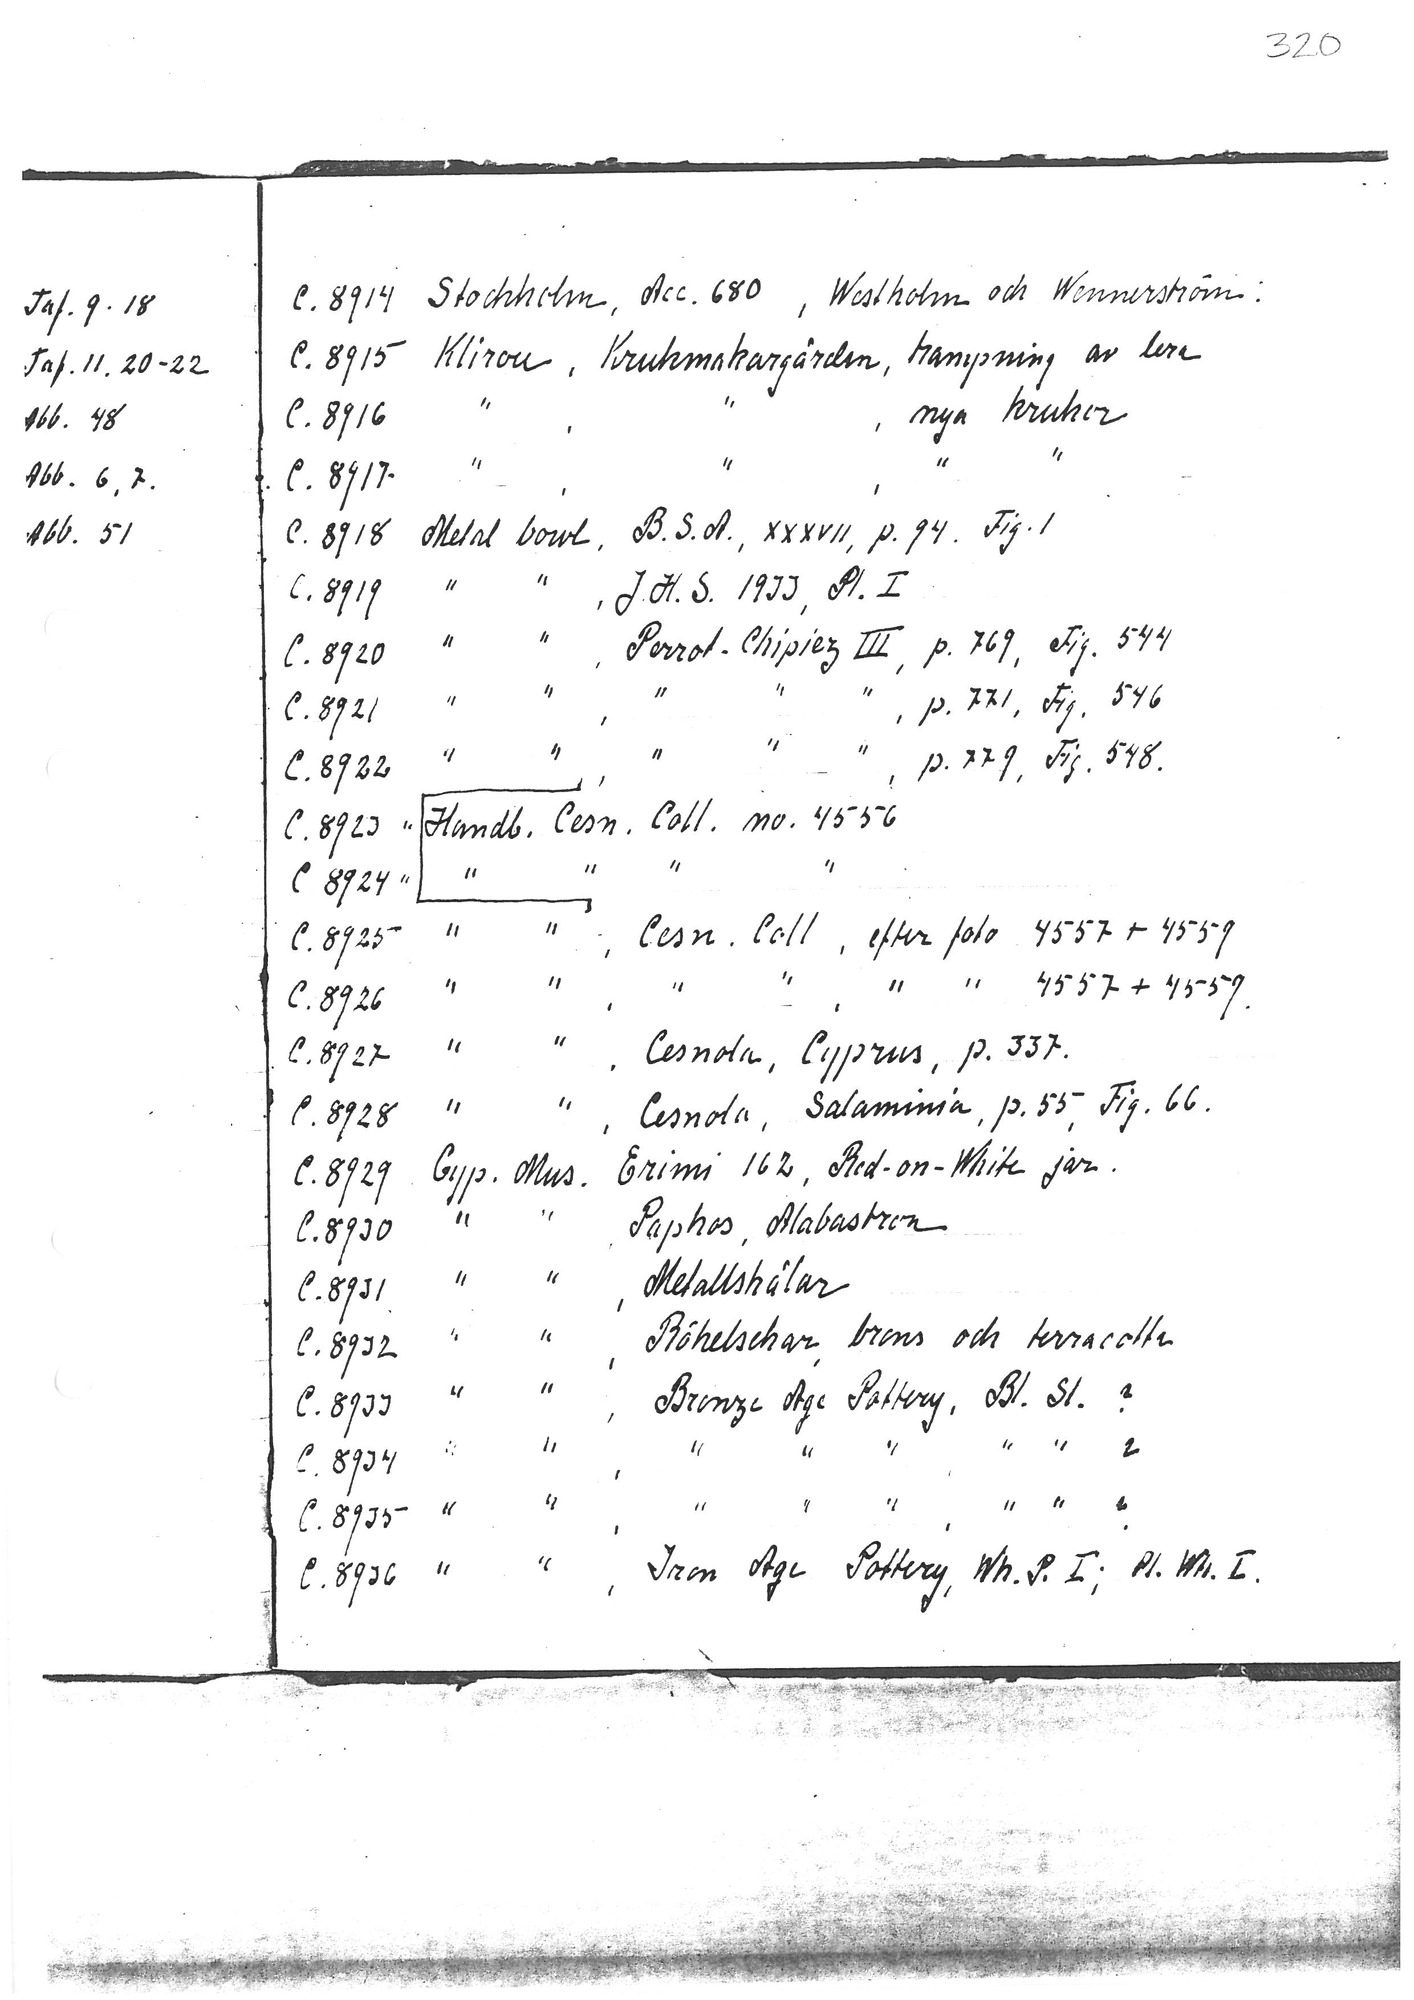 320
Taf. 9. 18
C. 8914 Stockholm, Acc. 680 , Westholm och Wennerström:
Taf. 11. 20-22
C. 8915 Klirou , Krukmakargården, trampning av lera
Abb. 48
C. 8916 " , " , nya krukor
Abb. 6, 7.
C. 8917 " , " , " "
Abb. 51
C. 8918 Metal bowl, B.S.A., XXXVII, p. 94. Fig. 1
C. 8919 " " , J.H.S. 1933, Pl. I
C. 8920 " " , Perrot-Chipiez III, p. 769, Fig. 544
C. 8921 " " , " " " , p. 771, Fig. 546
C. 8922 " " , " " " , p. 779, Fig. 548.
C. 8923 " Handb. Cesn. Coll. no. 4556
C 8924 " " " " "
C. 8925 " " , Cesn. Coll , efter foto 4557 + 4559
C. 8926 " " , " " , " " 4557 + 4559.
C. 8927 " " , Cesnola, Cyprus, p. 337.
C. 8928 " " , Cesnola, Salaminia, p. 55, Fig. 66.
C. 8929 Cyp. Mus. Erimi 162, Red-on-White jar.
C. 8930 " " , Paphos, Alabastron
C. 8931 " " , Metallskålar
C. 8932 " " , Rökelsekar, brons och terracotta
C. 8933 " " , Bronze Age Pottery, Bl. Sl. ?
C. 8934 " " , " " " , " " ?
C. 8935 " " , " " " , " " ?
C. 8936 " " , Iron Age Pottery, Wh. P. I; Pl. Wh. I.